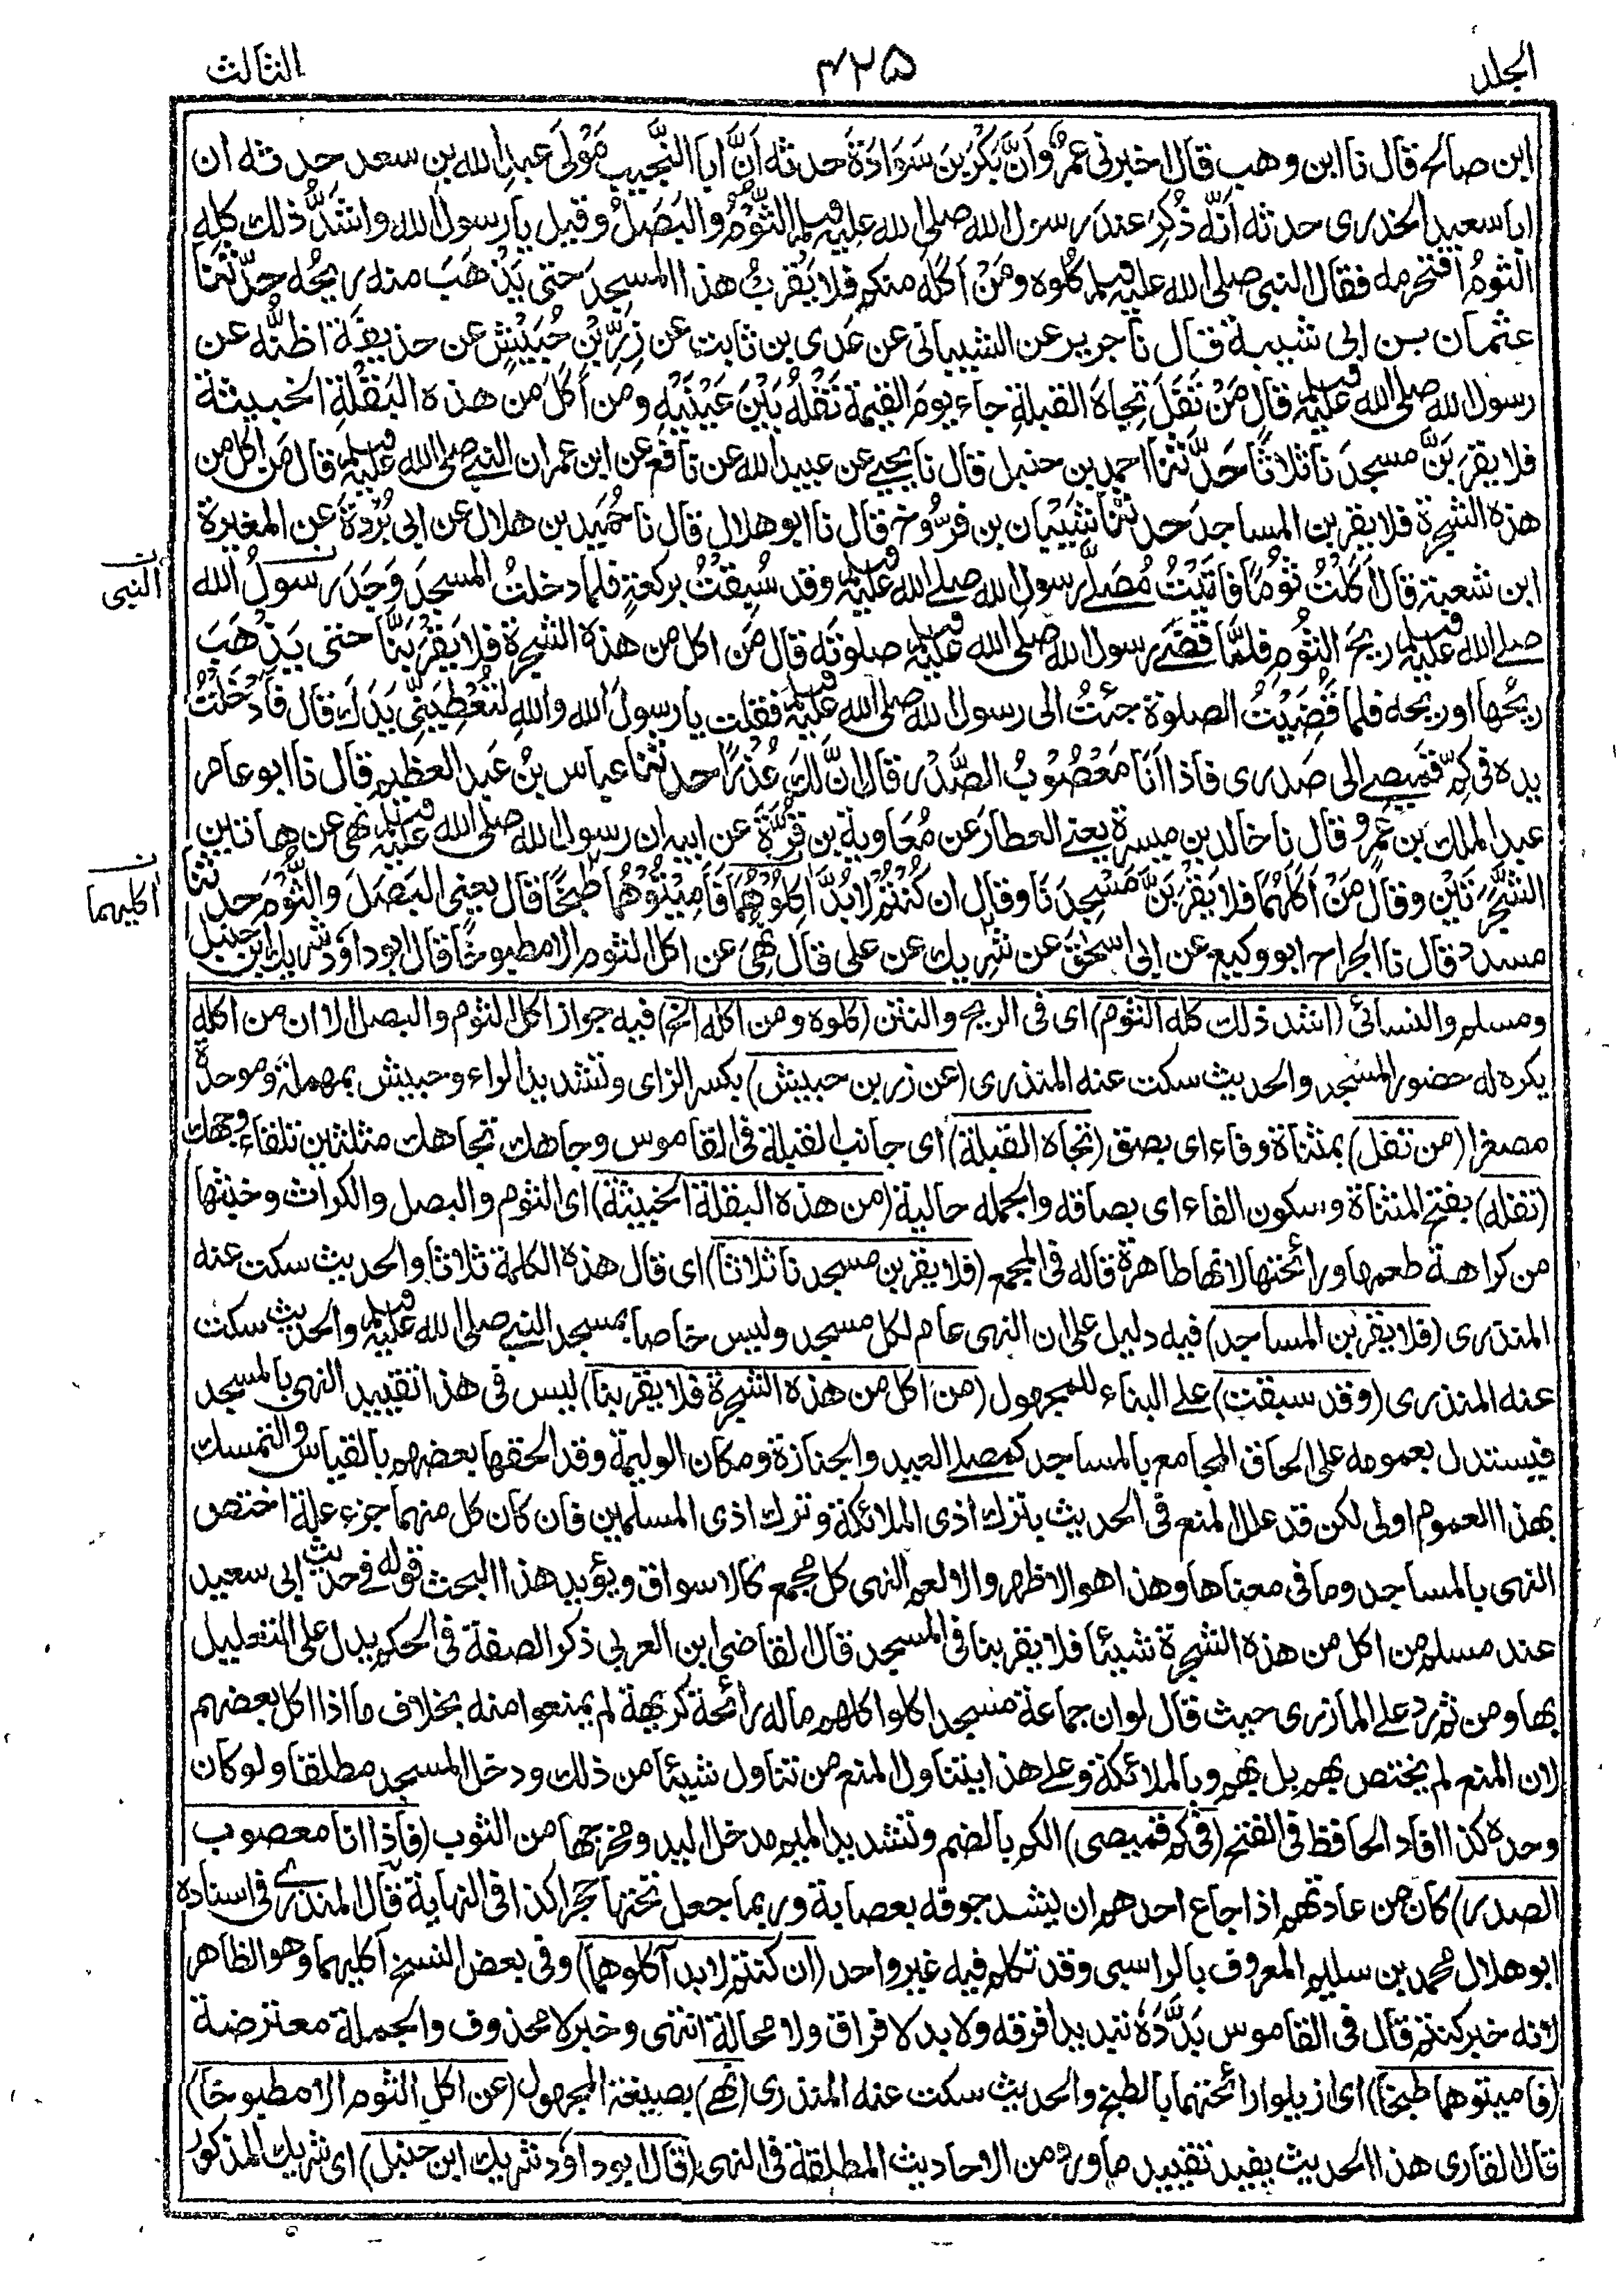 الجلد
٤٢٥
الثالث
ابن صالح قال نا ابن وهب قال اخبرنی عمرٌو اَنَّ بَكْرَ بنَ سَوَادَةَ حدثه اَنَّ ابا النَّجِيبِ مَوْلَى عبدِ الله بن سعد حدثه ان
ابا سعيد الخدری حدثه اَنَّه ذُكِرَ عندَ رسول الله صلی الله عليه وسلم الثُّوْمُ والبَصَلُ وقيل يا رسولَ الله واَشَدُّ ذلك كلِّهِ
الثُّومُ اَفتحرمه فقال النبی صلی الله عليه وسلم كُلُوه ومَنْ اَكَلَه منكم فلا يَقْرَبْ هذا المسجدَ حتى يَذْهَبَ منه ريحُه حدَّثنا
عثمان بن ابی شيبة قال نا جرير عن الشيبانی عن عَدِی بن ثابت عن زِرِّ بْنِ حُبَيْشٍ عن حذيفة اظنُّه عن
رسول الله صلی الله عليه وسلم قال مَنْ تَفَلَ تِجَاهَ القبلةِ جاء يومَ القيمة تَفْلُه بَيْنَ عَيْنَيْهِ ومن اَكَلَ من هذه البَقْلَةِ الخبيثة
فلا يقرَبَنَّ مسجدَنا ثلاثًا حَدَّثنا احمد بن حنبل قال نا يحيى عن عبيد الله عن نافع عن ابن عمر ان النبی صلی الله عليه وسلم قال مَن اكل من
هذه الشجرة فلا يقربن المساجدَ حدثنا شَيْبَان بن فَرُّوخ قال نا ابو هلال قال نا حُمَيد بن هلال عن ابی بُرْدَةَ عن المغيرة
ابن شعبة قال اَكَلْتُ ثُوْمًا فاَتَيْتُ مُصَلَّى رسول الله صلی الله عليه وسلم وقد سُبِقْتُ بركعةٍ فلما دخلتُ المسجدَ وَجَدَ رسولُ الله
النبی
صلی الله عليه وسلم ريحَ الثُّومِ فلمَّا قَضَى رسول الله صلی الله عليه وسلم صلوتَه قال مَن اكل من هذه الشجرة فلا يَقْرَبَنَّا حتى يَذْهَبَ
ريحُها او ريحه فلما قُضِيَتِ الصلوة جئتُ الى رسول الله صلی الله عليه وسلم فقلت يا رسولَ الله واللهِ لَتُعْطِيَنِّی يَدَكَ قال فاَدْخَلْتُ
يده فی كُمِّ قميصی الى صَدری فاذا اَنَا مَعْصُوْبُ الصَّدْرِ قال اِنَّ لك عُذْرًا حدثنا عباس بنُ عبد العظيم قال نا ابو عامر
عبد الملك بن عَمرو قال نا خالد بن ميسرة يعنی العطار عن مُعَاوية بن قُرَّةَ عن ابيه ان رسول الله صلی الله عليه وسلم نهى عن هاتين
الشَّجَرَتَيْنِ وقال مَنْ اَكَلَهُما فلا يَقْرَبَنَّ مَسْجِدَنَا وقال ان كُنْتُمْ لا بُدَّ اٰكِلُوْهُمَا فَاَمِيْتُوْهُمَا طَبْخًا قال يعنی البَصَلَ والثُّوْمَ حدثنا
اٰكليهما
مسدد قال نا الجراح ابو وكيع عن ابی اسحٰقَ عن شَرِيك عن علی قال نُهِیَ عن اكل الثوم الا مطبوخًا قال ابو داؤد شريك ابن حنبل
ومسلم والنسائی (اشد ذلك كله الثوم) ای فی الريح والنتن (كلوه ومن اكله الخ) فيه جواز اكل الثوم والبصل الا ان من اكله
يكره له حضور المسجد والحديث سكت عنه المنذری (عن زر بن حبيش) بكسر الزای وتشديد الراء وحبيش بمهملة وموحدة
مصغرا (من تفل) بمثناة وفاء ای بصق (تجاه القبلة) ای جانب القبلة فی القاموس وجاهك تجاهك مثلثين تلقاء وجهك
(تفله) بفتح المثناة وسكون الفاء ای بصاقه والجملة حالية (من هذه البقلة الخبيثة) ای الثوم والبصل والكراث وخبثها
من كراهة طعمها ورائحتها لانها طاهرة قاله فی المجمع (فلا يقربن مسجدنا ثلاثا) ای قال هذه الكلمة ثلاثا والحديث سكت عنه
المنذری (فلا يقربن المساجد) فيه دليل على ان النهی عام لكل مسجد وليس خاصا بمسجد النبی صلی الله عليه وسلم والحديث سكت
عنه المنذری (وقد سبقت) على البناء للمجهول (من اكل من هذه الشجرة فلا يقربنا) ليس فی هذا تقييد النهی بالمسجد
فيستدل بعمومه على الحاق المجامع بالمساجد كمصلى العيد والجنازة ومكان الوليمة وقد الحقها بعضهم بالقياس والتمسك
بهذا العموم اولى لكن قد علل المنع فی الحديث بترك اذى الملائكة وترك اذى المسلمين فان كان كل منهما جزء علة اختص
النهی بالمساجد وما فی معناها وهذا هو الاظهر والا لعم النهی كل مجمع كالاسواق ويؤيد هذا البحث قوله فی حديث ابی سعيد
عند مسلم من اكل من هذه الشجرة شيئا فلا يقربنا فی المسجد قال القاضی ابن العربی ذكر الصفة فی الحكم يدل على التعليل
بها ومن ثم رد على المازری حيث قال لو ان جماعة مسجد اكلوا كلهم ما له رائحة كريهة لم يمنعوا منه بخلاف ما اذا اكل بعضهم
لان المنع لم يختص بهم بل بهم وبالملائكة وعلى هذا يتناول المنع من تناول شيئا من ذلك ودخل المسجد مطلقا ولو كان
وحده كذا افاد الحافظ فی الفتح (فی كم قميصی) الكم بالضم وتشديد الميم مدخل اليد ومخرجها من الثوب (فاذا انا معصوب
الصدر) كان من عادتهم اذا جاع احدهم ان يشد جوفه بعصابة وربما جعل تحتها حجرا كذا فی النهاية قال المنذری فی اسناده
ابو هلال محمد بن سليم المعروف بالراسبی وقد تكلم فيه غير واحد (ان كنتم لا بد آكلوهما) وفی بعض النسخ آكليهما وهو الظاهر
لانه خبر كنتم قال فی القاموس بَدَّدَهُ تبديدا فرقه ولا بد لا فراق ولا محالة انتهى وخبر لا محذوف والجملة معترضة
(فاميتوهما طبخا) ای ازيلوا رائحتهما بالطبخ والحديث سكت عنه المنذری (نهی) بصيغة المجهول (عن اكل الثوم الا مطبوخا)
قال القاری هذا الحديث يفيد تقييد ما ورد من الاحاديث المطلقة فی النهی (قال ابو داؤد شريك ابن حنبل) ای شريك المذكور